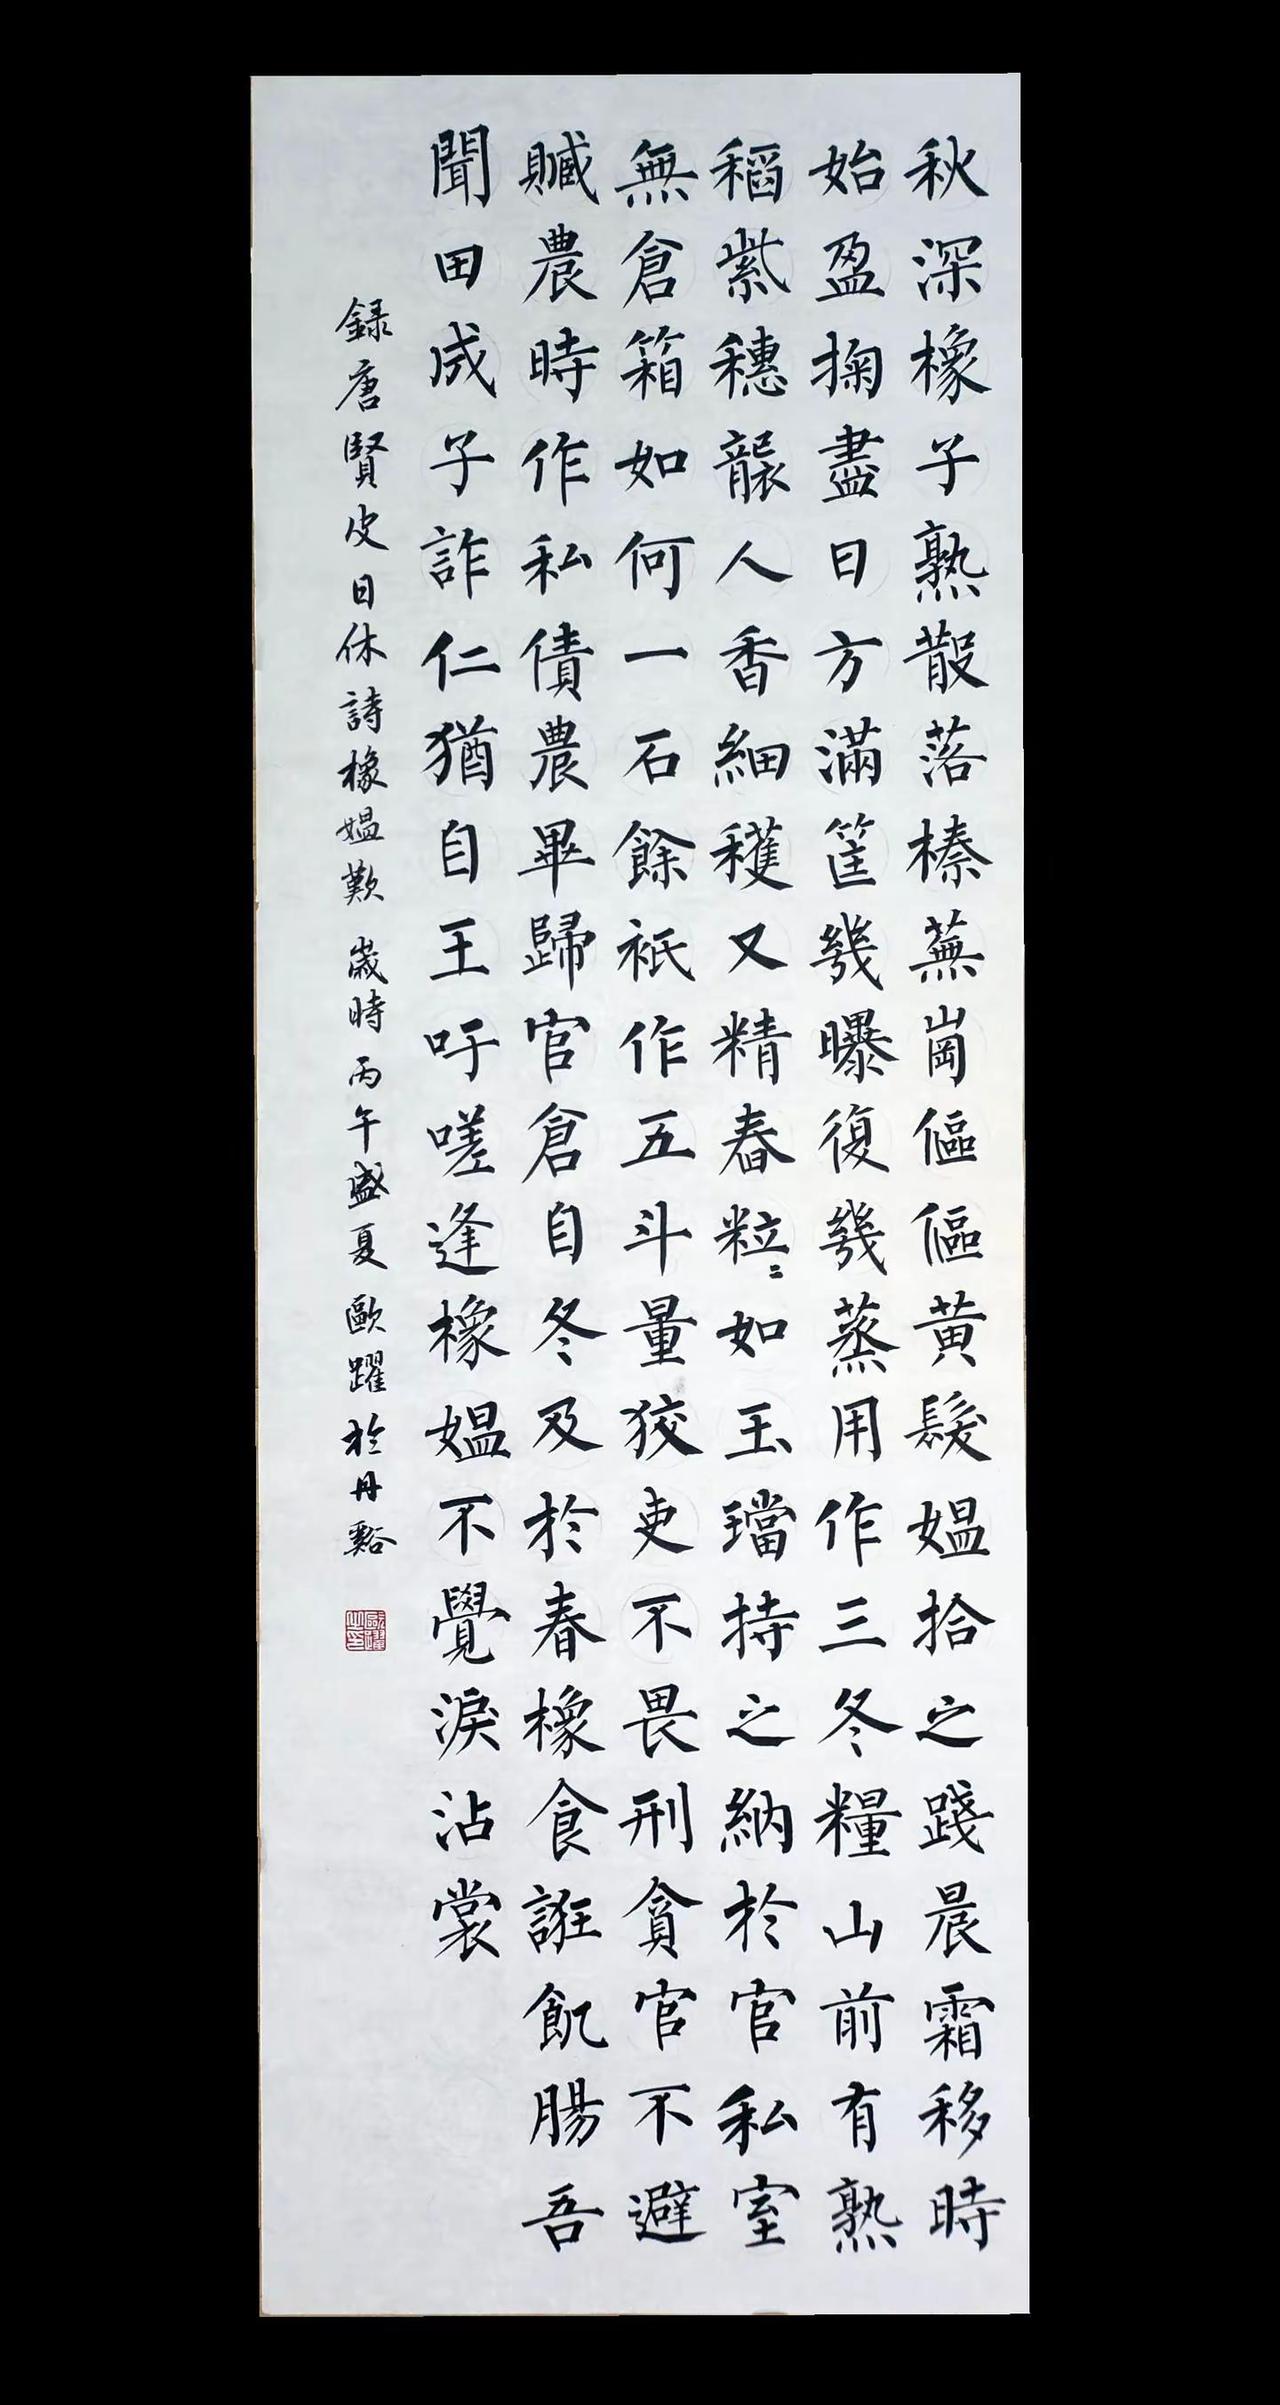 秋深橡子熟散落榛蕪崗傴傴黃髮媼拾之踐晨霜移時
始盈掬盡日方滿筐幾曝復幾蒸用作三冬糧山前有熟
稻紫穗襲人香細穫又精舂粒〻如玉璫持之納於官私室
無倉箱如何一石餘袛作五斗量狡吏不畏刑貪官不避
贓農時作私債農畢歸官倉自冬及於春橡食誑飢腸吾
聞田成子詐仁猶自王吁嗟逢橡媼不覺淚沾裳
錄唐賢皮日休詩橡媼歎 歲時丙午盛夏 歐躍於丹谿
歐躍之印